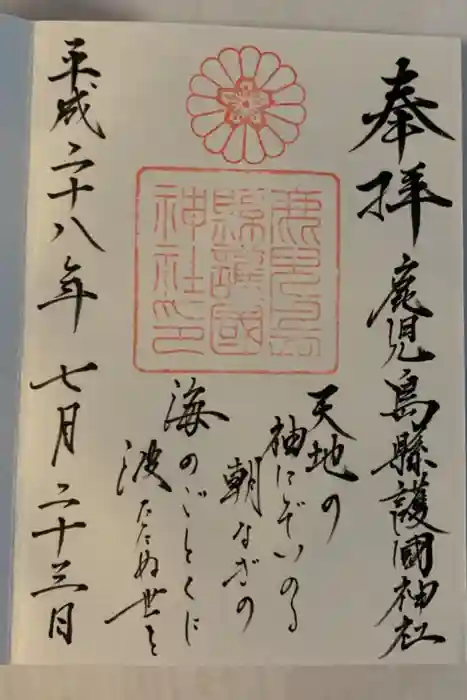 奉拝
鹿児島縣護國神社
鹿児島
縣護國
神社印
天地の
神にぞいのる
朝なぎの
海のごとくに
波たたぬ世を
平成二十八年 七月 二十三日